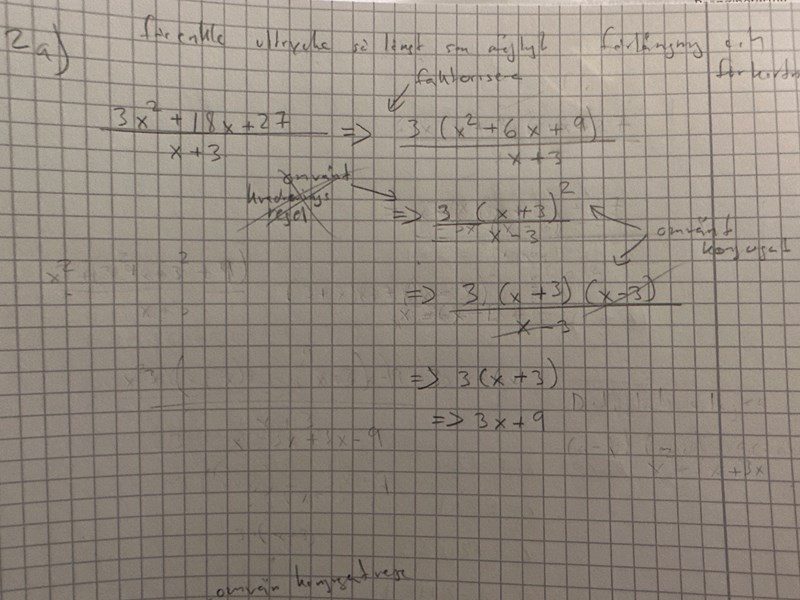 2a) förenkla uttrycke så långt som möjlyt förlängning och
förkortn
faktorisera
3x² + 18x + 27 / x + 3 => 3 (x² + 6x + 9) / x + 3
omvänt
regel
=> 3 (x + 3)² / x - 3
omvänt
konjugat
=> 3 (x + 3) (x - 3) / x - 3
=> 3(x + 3)
=> 3x + 9
omvän konjugatrege